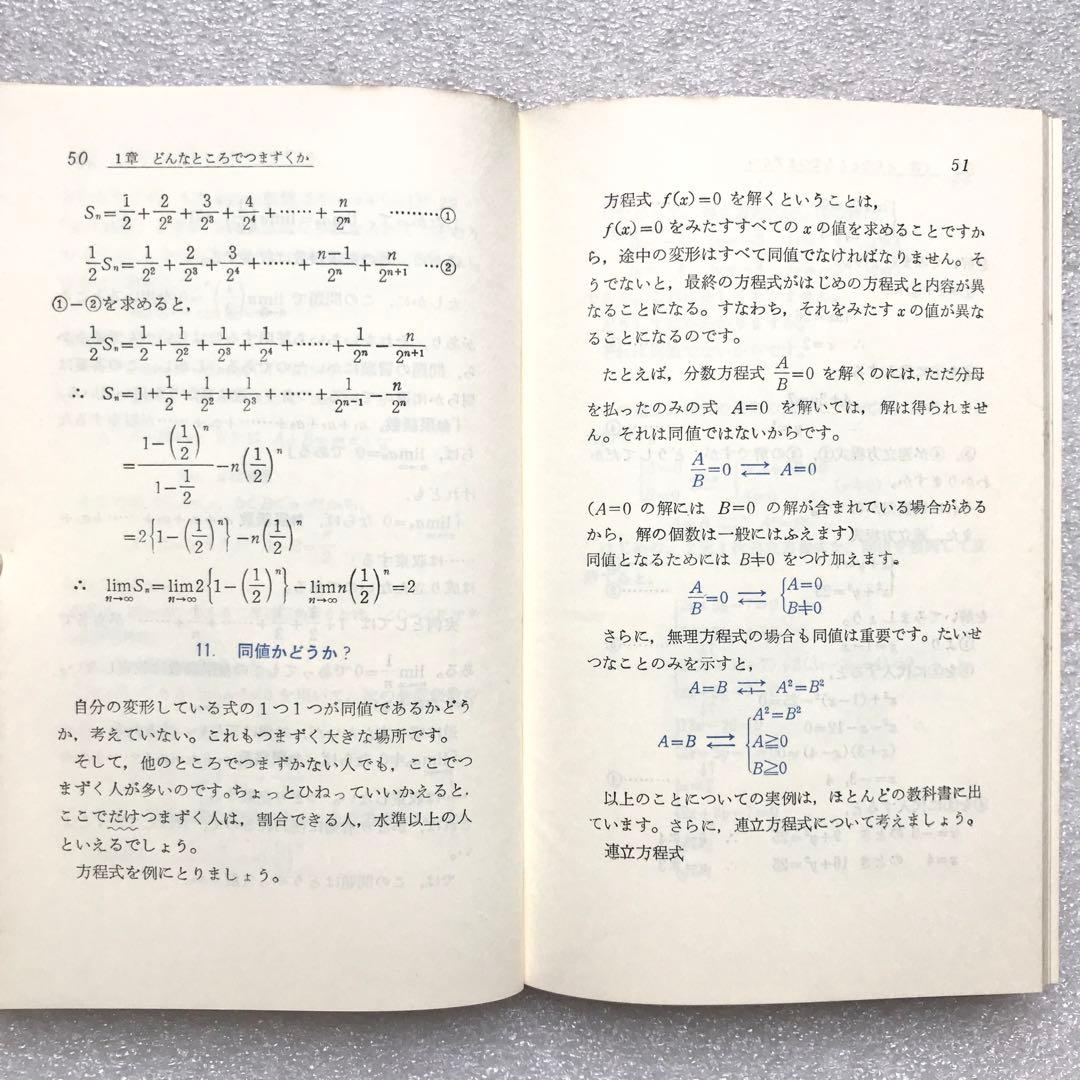 50 1章 どんなところでつまずくか
Sₙ=1/2+2/2²+3/2³+4/2⁴+……+n/2ⁿ ………①
1/2 Sₙ=1/2²+2/2³+3/2⁴+……+(n−1)/2ⁿ+n/2ⁿ⁺¹ …②
①−②を求めると,
1/2 Sₙ=1/2+1/2²+1/2³+1/2⁴+……+1/2ⁿ−n/2ⁿ⁺¹
∴ Sₙ=1+1/2+1/2²+1/2³+……+1/2ⁿ⁻¹−n/2ⁿ
={1−(1/2)ⁿ}/(1−1/2)−n(1/2)ⁿ
=2{1−(1/2)ⁿ}−n(1/2)ⁿ
∴ lim_{n→∞} Sₙ=lim_{n→∞} 2{1−(1/2)ⁿ}−lim_{n→∞} n(1/2)ⁿ=2
11. 同値かどうか?
自分の変形している式の1つ1つが同値であるかどう
か,考えていない。これもつまずく大きな場所です。
そして,他のところでつまずかない人でも,ここでつ
まずく人が多いのです。ちょっとひねっていいかえると,
ここでだけつまずく人は,割合できる人,水準以上の人
といえるでしょう。
方程式を例にとりましょう。
51
方程式 f(x)=0 を解くということは,
f(x)=0 をみたすすべての x の値を求めることですか
ら,途中の変形はすべて同値でなければなりません。そ
うでないと,最終の方程式がはじめの方程式と内容が異
なることになる。すなわち,それをみたす x の値が異な
ることになるのです。
たとえば,分数方程式 A/B=0 を解くのには,ただ分母
を払ったのみの式 A=0 を解いては,解は得られませ
ん。それは同値ではないからです。
A/B=0 ⇄ A=0
(A=0 の解には B=0 の解が含まれている場合がある
から,解の個数は一般にはふえます)
同値となるためには B≠0 をつけ加えます。
A/B=0 ⇄ {A=0
B≠0
さらに,無理方程式の場合も同値は重要です。たいせ
つなことのみを示すと,
A=B ⇄ A²=B²
A=B ⇄ {A²=B²
A≧0
B≧0
以上のことについての実例は,ほとんどの教科書に出
ています。さらに,連立方程式について考えましょう。
連立方程式